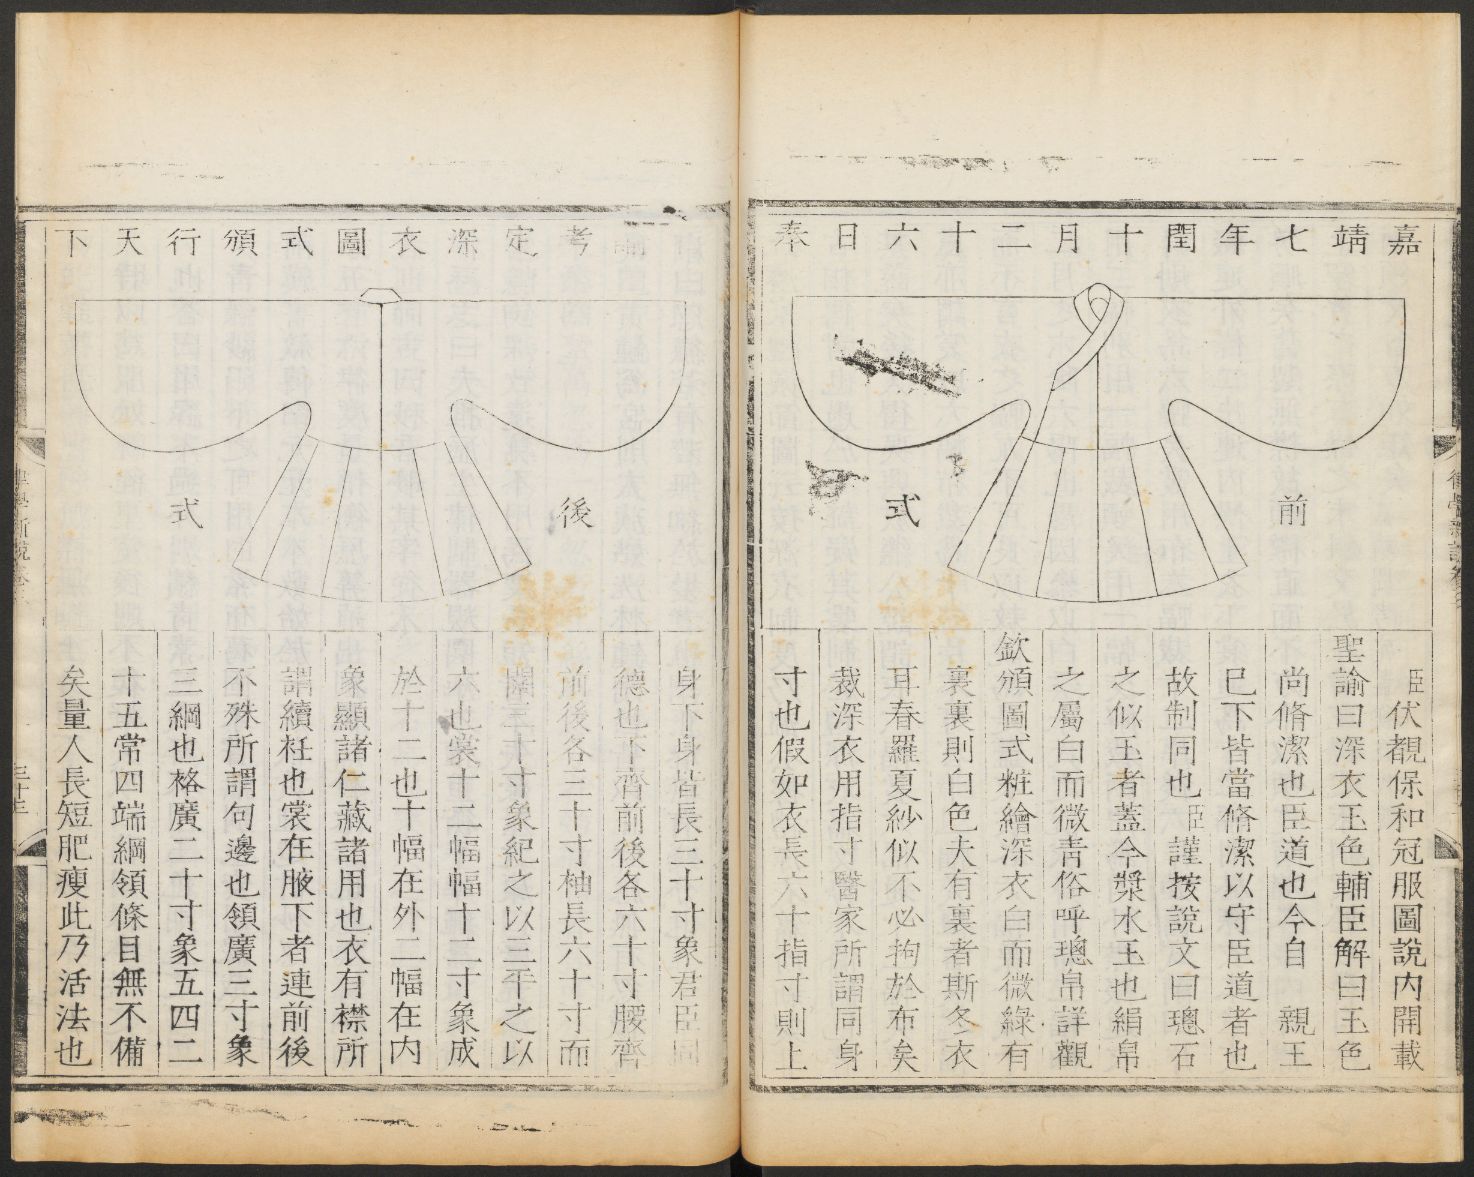 嘉靖七年閏十月二十六日奉
前式
臣伏覩保和冠服圖說内開載
聖諭曰深衣玉色輔臣解曰玉色
尚脩潔也臣道也今自 親王
巳下皆當脩潔以守臣道者也
故制同也臣謹按說文曰璁石
之似玉者蓋今漿水玉也絹帛
之屬白而微青俗呼璁帛詳觀
欽頒圖式粧繪深衣白而微綠有
裏裏則白色夫有裏者斯冬衣
耳春羅夏紗似不必拘於布矣
裁深衣用指寸醫家所謂同身
寸也假如衣長六十指寸則上
考定深衣圖式頒行天下
後式
身下身皆長三十寸象君臣同
德也下齊前後各六十寸腰齊
前後各三十寸袖長六十寸而
闊三十寸象紀之以三平之以
六也裳十二幅幅十二寸象成
於十二也十幅在外二幅在内
象顯諸仁藏諸用也衣有襟所
謂續衽也裳在腋下者連前後
不殊所謂句邊也領廣三寸象
三綱也袼廣二十寸象五四二
十五常四端綱領條目無不備
矣量人長短肥瘦此乃活法也
三十三